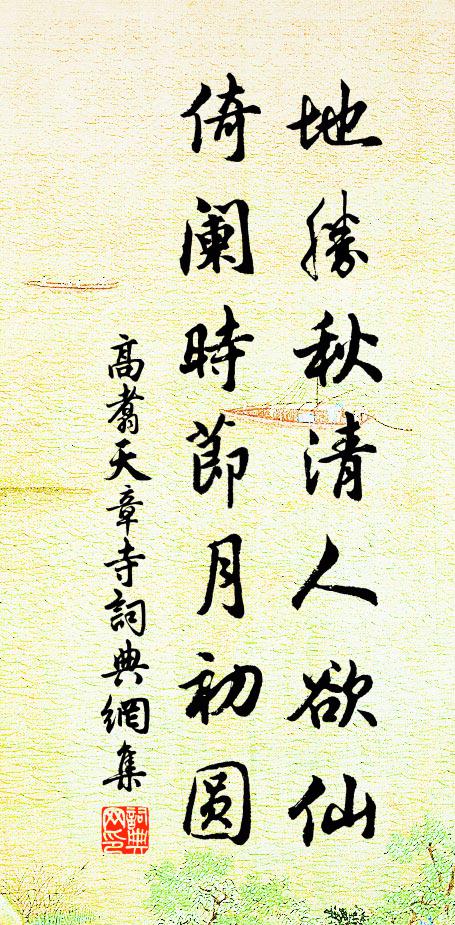 地勝秋清人欲仙
倚闌時節月初圓
高翥天章寺詞典網集
詞典網印